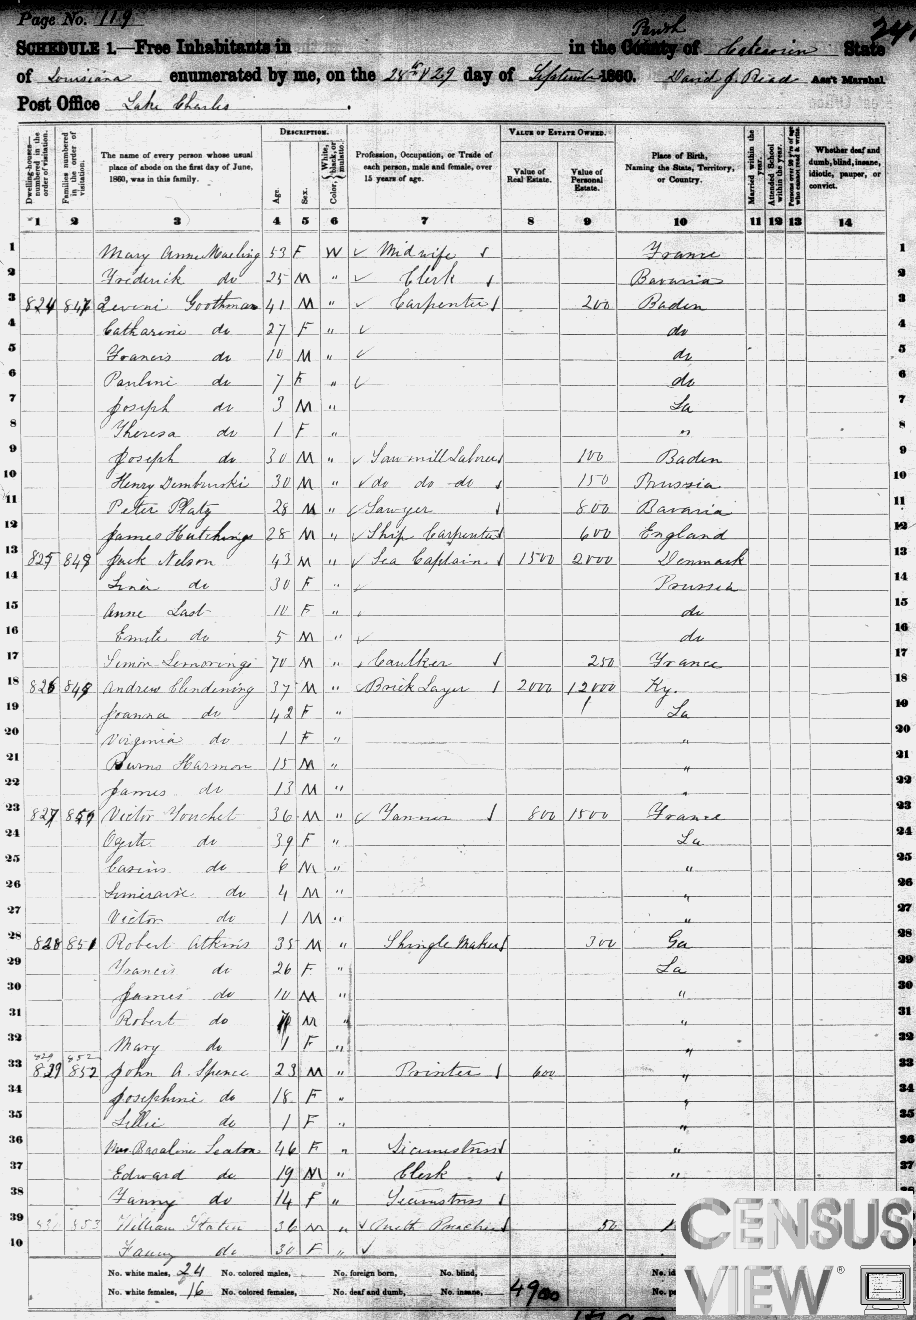 Page No. 119
SCHEDULE 1.—Free Inhabitants in in the County of Parish Calcasieu State
of Louisiana enumerated by me, on the 28th & 29 day of September 1860. David J. Read Ass't Marshal
Post Office Lake Charles.
DESCRIPTION. VALUE OF ESTATE OWNED.
Dwelling-houses—numbered in the order of visitation. Families numbered in the order of visitation. The name of every person whose usual place of abode on the first day of June, 1860, was in this family. Age. Sex. Color, White, black, or mulatto. Profession, Occupation, or Trade of each person, male and female, over 15 years of age. Value of Real Estate. Value of Personal Estate. Place of Birth, Naming the State, Territory, or Country. Married within the year. Attended School within the year. Persons over 20 y'rs of age who cannot read & write. Whether deaf and dumb, blind, insane, idiotic, pauper, or convict.
1 2 3 4 5 6 7 8 9 10 11 12 13 14
1 Mary Anne 53 F W Midwife France 1
2 Frederick do 25 M " Clerk Bavaria 2
3 824 847 Goothman 41 M " Carpenter 200 Baden 3
4 Catharine do 27 F " do 4
5 Francis do 10 M " do 5
6 Paulini do 7 F " do 6
7 Joseph do 3 M " La 7
8 Theresa do 1 F " " 8
9 Joseph do 30 M " Saw mill Laborer 100 Baden 9
10 Henry Demburski 30 M " do do do 150 Prussia 10
11 Peter Platz 28 M " Sawyer 800 Bavaria 11
12 James Hutchings 28 M " Ship Carpenter 600 England 12
13 825 848 Jack Nelson 43 M " Sea Captain 1500 2000 Denmark 13
14 do 30 F " Prussia 14
15 Anne Last 10 F " do 15
16 Emile do 5 M " do 16
17 Simon 70 M " Caulker 250 France 17
18 826 849 Andrew Clendening 37 M " Brick Layer 2000 12000 Ky. 18
19 Joanna do 42 F " La 19
20 Virginia do 1 F " " 20
21 Burns Harmon 15 M " " 21
22 James do 13 M " " 22
23 827 850 Victor Touchet 36 M " Tanner 800 1500 France 23
24 do 39 F " La 24
25 Casius do 6 M " " 25
26 do 4 M " " 26
27 Victor do 1 M " " 27
28 828 851 Robert Atkins 35 M " Shingle Maker 300 Ga 28
29 Francis do 26 F " La 29
30 James do 10 M " " 30
31 Robert do M " " 31
32 Mary do 1 F " " 32
829 852
33 829 852 John A. Spence 23 M " Printer 600 " 33
34 Josephine do 18 F " " 34
35 Lillie do 1 F " " 35
36 Mrs. Basaline Seaton 46 F " Sicumstriss " 36
37 Edward do 19 M " Clerk " 37
38 Fanny do 14 F " Sicumstriss 38
39 830 853 William Staten 36 M " Meth Preacher 50
10 Fanny do 30 F "
No. white males, 24 No. colored males, No. foreign born, No. blind,
No. white females, 16 No. colored females, No. deaf and dumb, No. insane, 4900
CENSUS
VIEW®